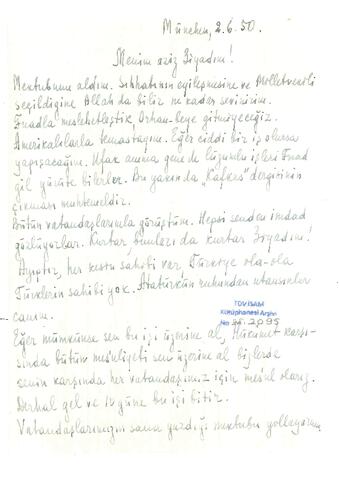 München, 2.6.50.
Menim aziz Ziyadım!
Mektubunu aldım. Sıhhatının eyileşmesine ve Milletvekili
seçildigine Allah da bilir ne kadar sevinirim.
Fuadla meslehetleştik Orhan-beye gitmiyeceğiz.
Amerikalılarla temastayım. Eğer ciddi bir iş olursa
yapışacağım. Ufak amma gene de lüzumlu işleri Fuad
gil yürüte bilerler. Bu yakında "Kafkas" dergisinin
çıkması muhtemeldir.
Bütün vatandaşlarımla görüştüm. Hepsi senden imdad
gözlüyorlar. Kurtar, bunları da kurtar Ziyadım!
Ayıptır, her kesin sahibi var Türkiye ola-ola
Türklerin sahibi yok. Atatürkün ruhundan utansınlar
canım.
TDV İSAM
Kütüphanesi Arşivi
No 2095
Eğer mümkünse sen bu işi üzerine al, Hükumet karşı-
sında bütün mesuliyeti sen üzerine al bizlerde
senin karşında her vatandaşımız için mesul olarız.
Derhal gel ve 10 güne bu işi bitir.
Vatandaşlarımızın sana yazdığı mektubu yollayorum.